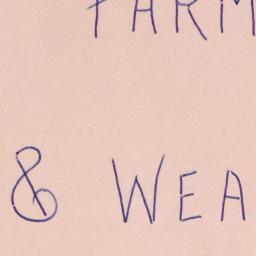 FARM
& WEA